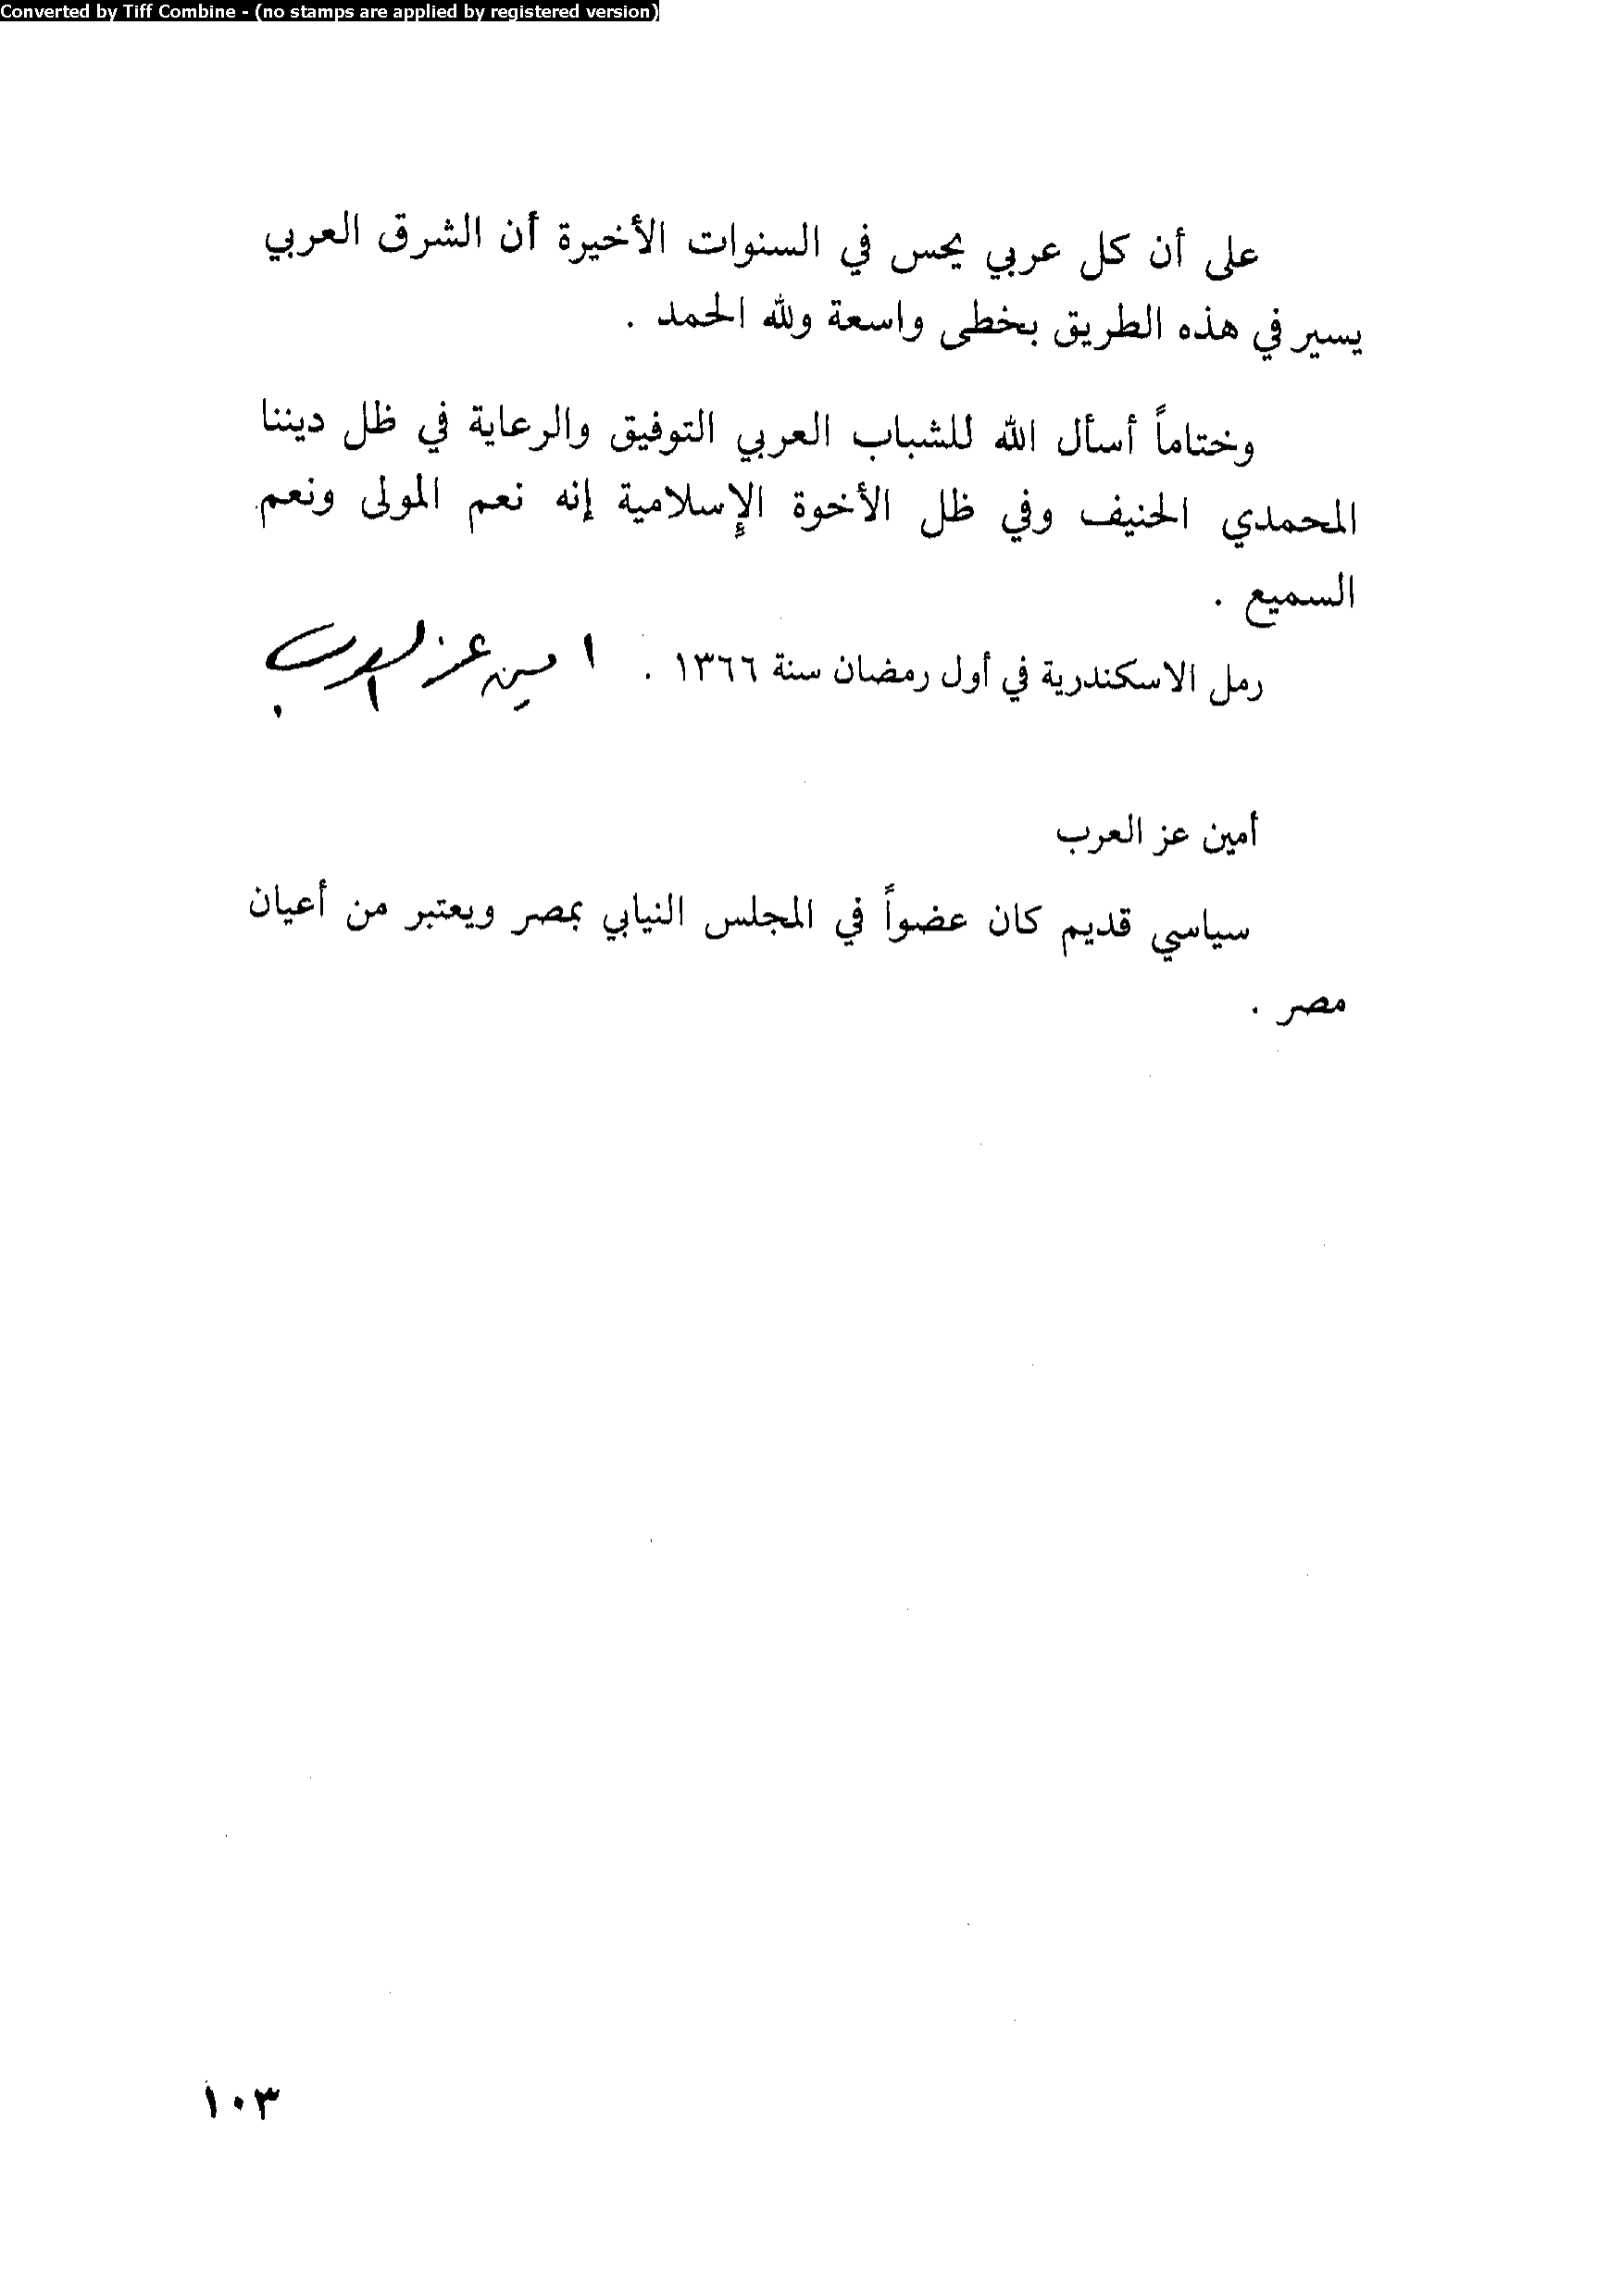 Converted by Tiff Combine - (no stamps are applied by registered version)
على أن كل عربي يحس في السنوات الأخيرة أن الشرق العربي
يسير في هذه الطريق بخطى واسعة ولله الحمد .
وختاماً أسأل الله للشباب العربي التوفيق والرعاية في ظل ديننا
المحمدي الحنيف وفي ظل الأخوة الإسلامية إنه نعم المولى ونعم
السميع .
رمل الاسكندرية في أول رمضان سنة ١٣٦٦ . امين عز العرب
أمين عز العرب
سياسي قديم كان عضواً في المجلس النيابي بمصر ويعتبر من أعيان
مصر .
١٠٣